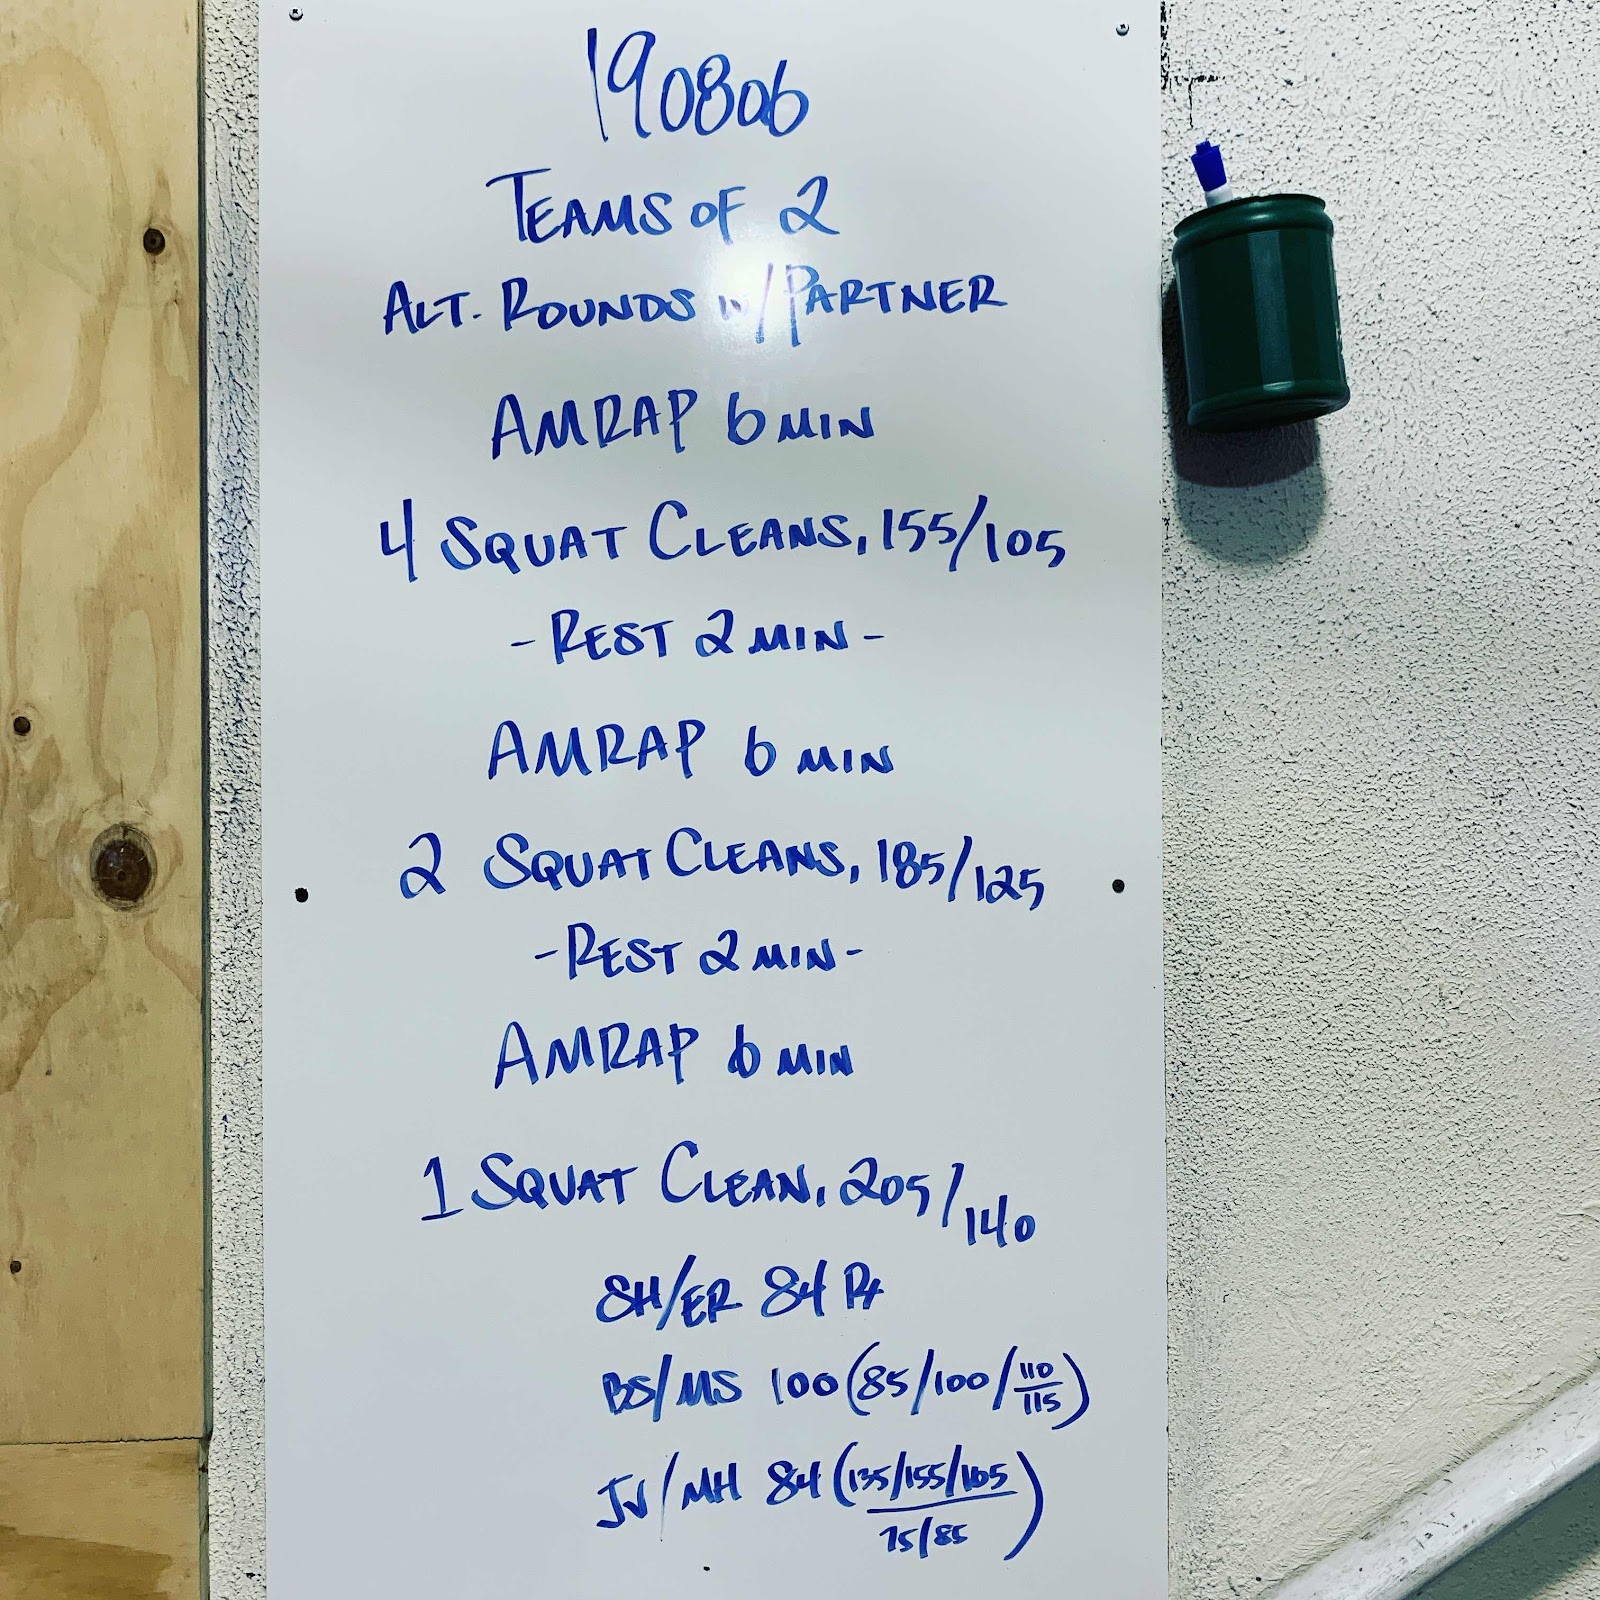 190806
TEAMS OF 2
ALT. ROUNDS W/PARTNER
AMRAP 6 MIN
4 SQUAT CLEANS, 155/105
- REST 2 MIN -
AMRAP 6 MIN
2 SQUAT CLEANS, 185/125
- REST 2 MIN -
AMRAP 6 MIN
1 SQUAT CLEAN, 205/140
SH/ER 84 Rx
BS/MS 100 (85/100/110
115)
JV/MH 84 (135/155/165
75/85)